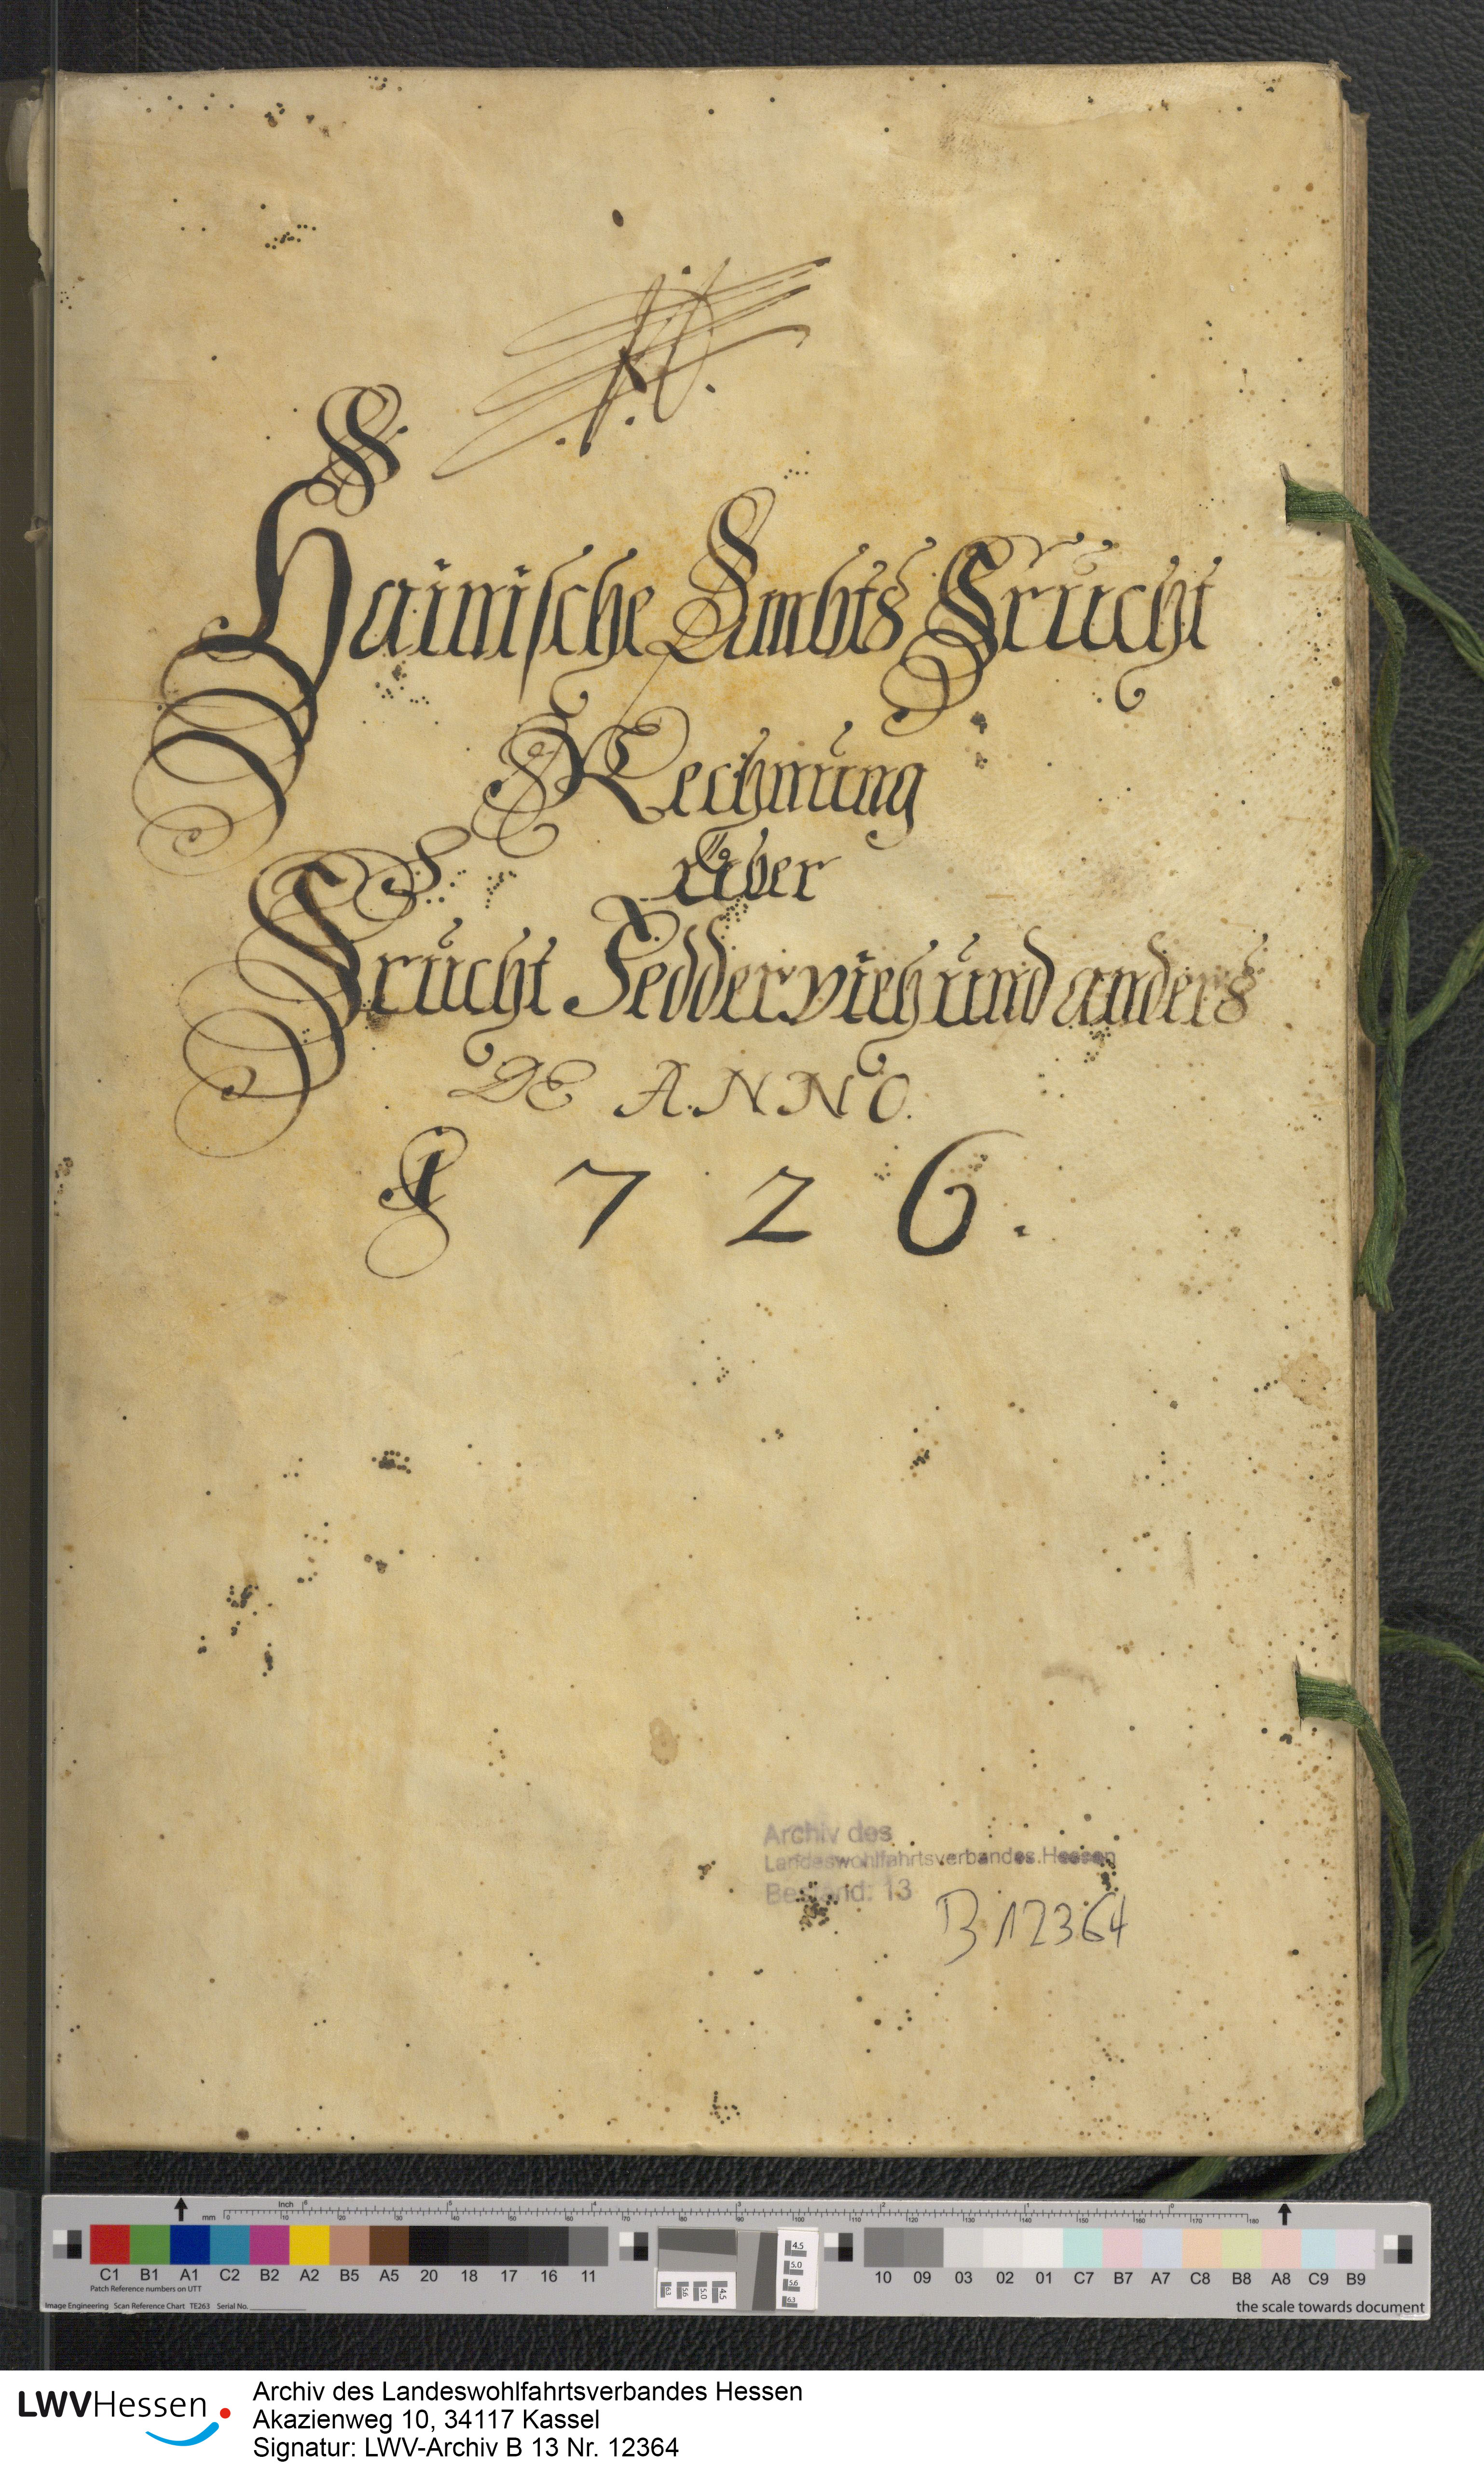 Hainische Ambts Frucht
Rechnung
über
Frucht Fedderviehund anders
DE ANNO.
1726.
Archiv des
Landeswohlfahrtsverbandes Hessen
Bestand: 13
B 12364
mm
Inch
C1 B1 A1 C2 B2 A2 B5 A5 20 18 17 16 11
10 09 03 02 01 C7 B7 A7 C8 B8 A8 C9 B9
Patch Reference numbers on UTT
Image Engineering Scan Reference Chart TE263 Serial No.
the scale towards document
LWVHessen
Archiv des Landeswohlfahrtsverbandes Hessen
Akazienweg 10, 34117 Kassel
Signatur: LWV-Archiv B 13 Nr. 12364